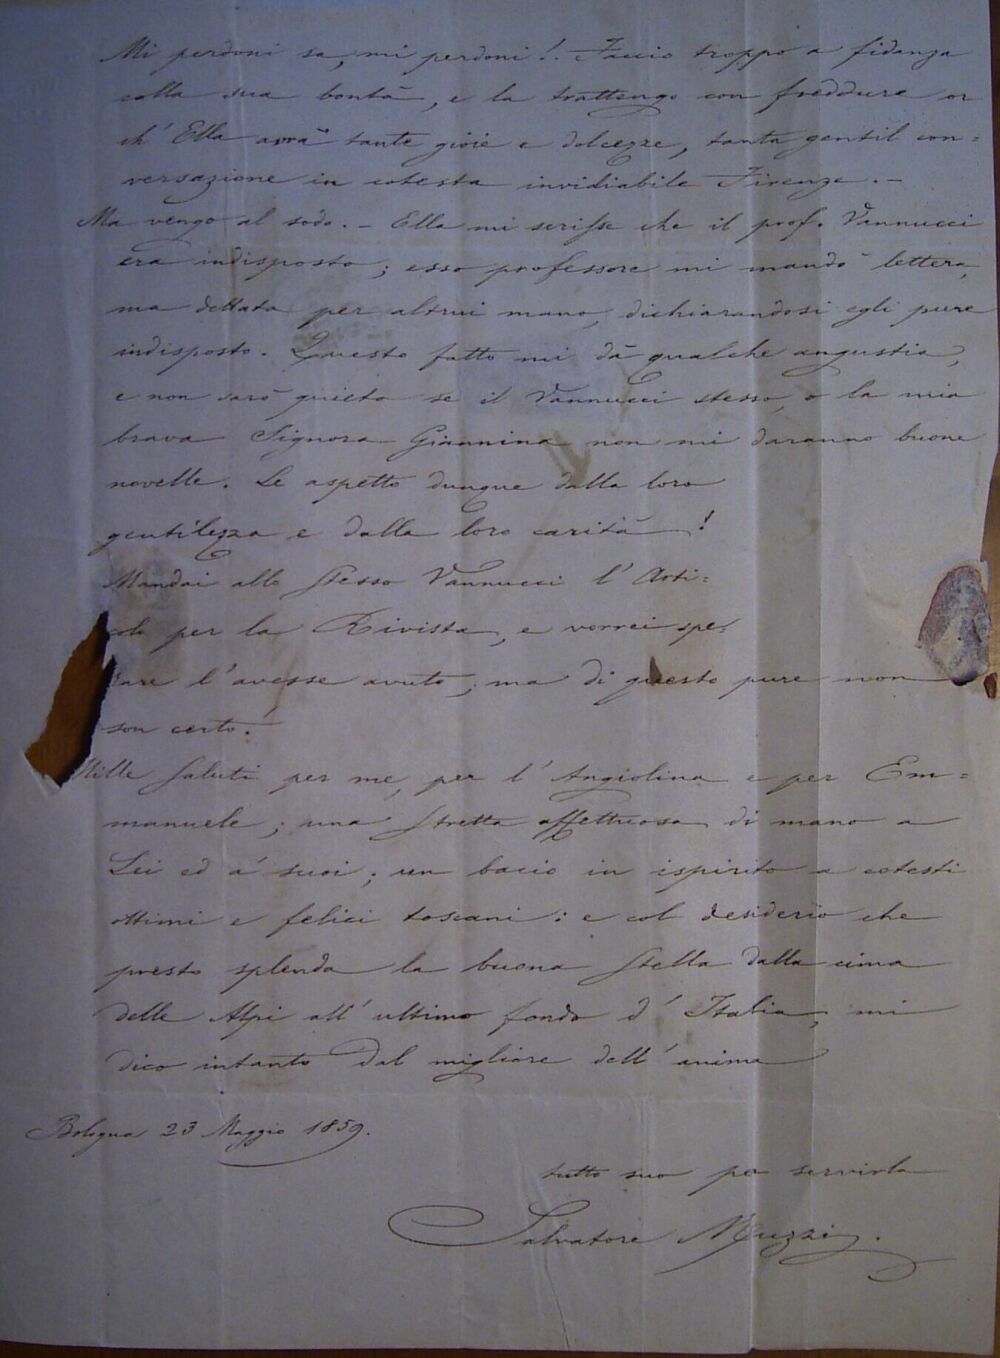 Mi perdoni sa, mi perdoni! Faccio troppo a fidanza
colla sua bontà, e la trattengo con freddure or
ch' Ella avrà tante gioie e dolcezze, tanta gentil con=
versazione in cotesta invidiabile Firenze. —
Ma vengo al sodo. — Ella mi scrisse che il prof. Vannucci
era indisposto; esso professore mi mandò lettera,
ma dettata per altrui mano, dichiarandosi egli pure
indisposto. Questo fatto mi dà qualche angustia,
e non sarò quieto se il Vannucci stesso, o la mia
brava Signora Giannina non mi daranno buone
novelle. Le aspetto dunque dalla loro
gentilezza e dalla loro carità!
Mandai allo stesso Vannucci l' Arti=
colo per la Rivista, e vorrei spe=
rare l' avesse avuto; ma di questo pure non
son certo!
Mille saluti per me, per l' Angiolina e per Em=
manuele; una stretta affettuosa di mano a
Lei ed a' suoi; un bacio in ispirito a cotesti
ottimi e felici toscani: e col desiderio che
presto splenda la buona stella dalla cima
delle Alpi all' ultimo fondo d' Italia, mi
dico intanto dal migliore dell' anima
Bologna 23 Maggio 1859.
tutto suo per servirla
Salvatore Muzzi.